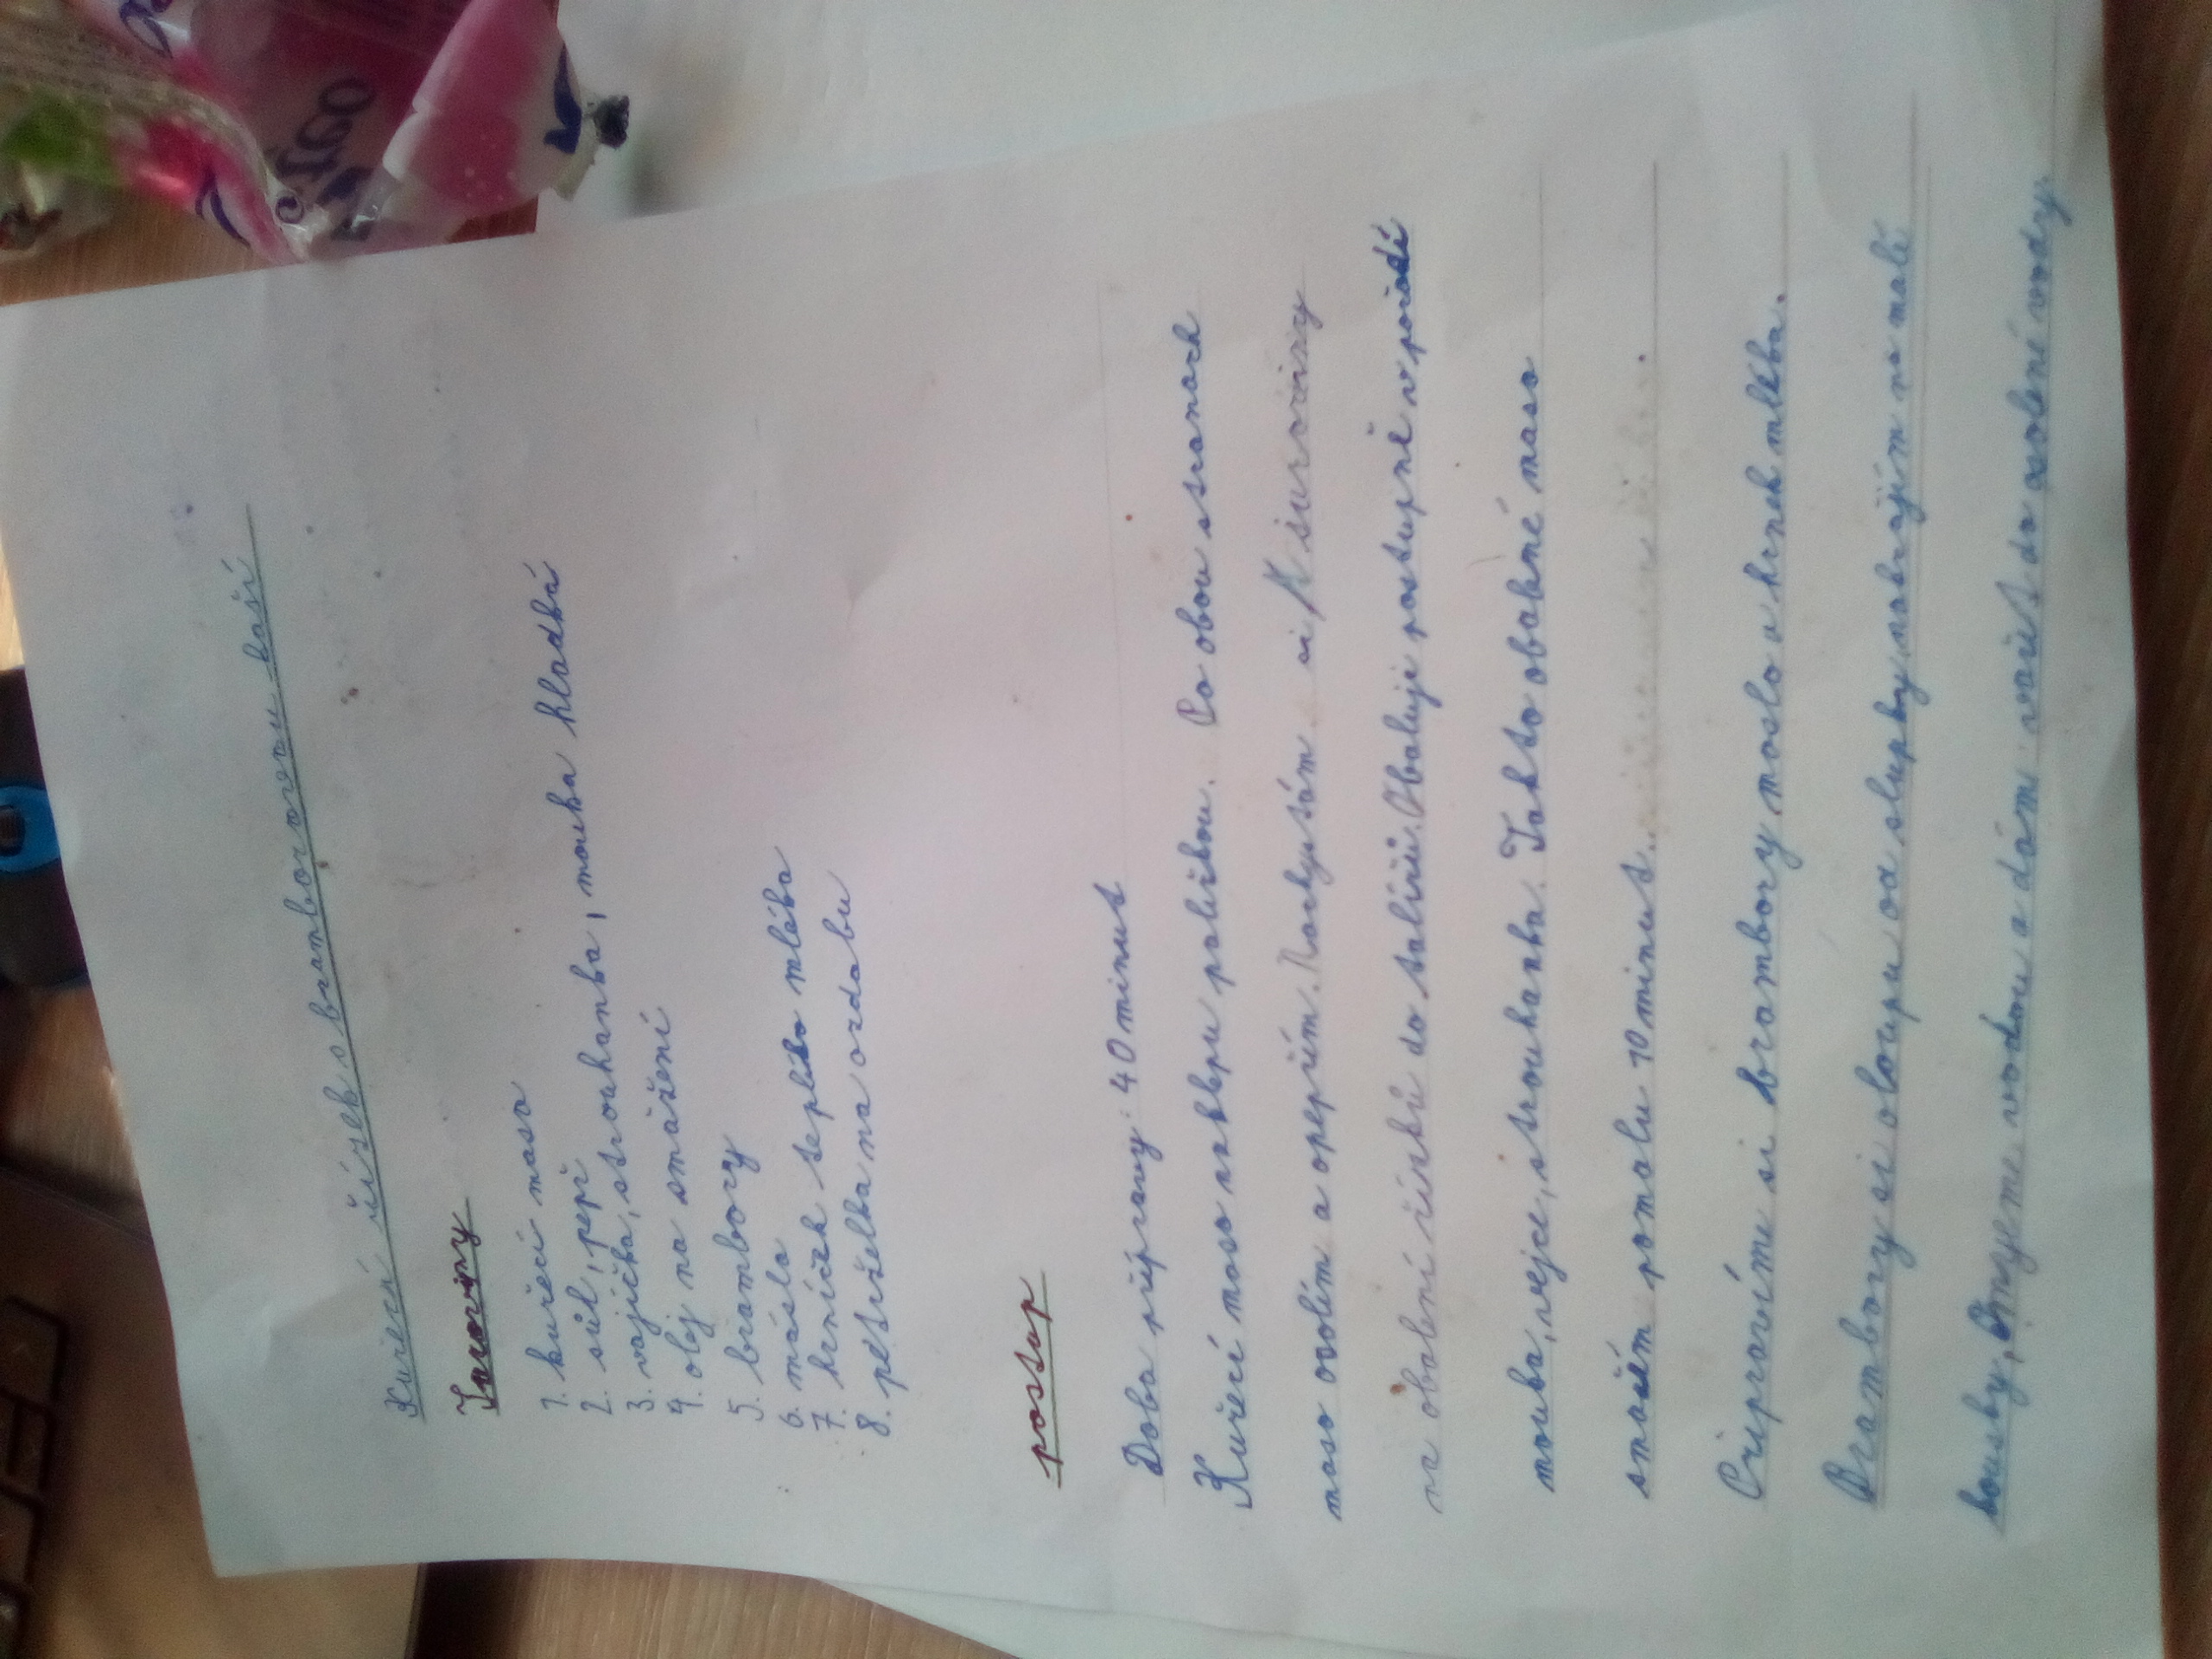 Kuřecí řízek s bramborovou kaší
Suroviny
1. kuřecí maso
2. sůl, pepř
3. vajíčka, strouhanka, mouka hladká
4. olej na smažení
5. brambory
6. máslo
7. hrníček teplého mléka
8. petrželka na ozdobu
postup
Doba přípravy: 40 minut
Kuřecí maso naklepu paličkou. Po obou stranach
maso osolím a opepřím. Nachystám si suroviny
na obalení řízků do talířů. Obaluji postupně v pořadí
mouka, vejce, strouhanka. Takto obalené maso
smažím pomalu 10 minut.
Připravíme si brambory maslo a hrnek mléka.
Brambory si oloupu od slupky, nakrájím na malé
kousky, Omyeme vodou a dám vařit do osolené vody.